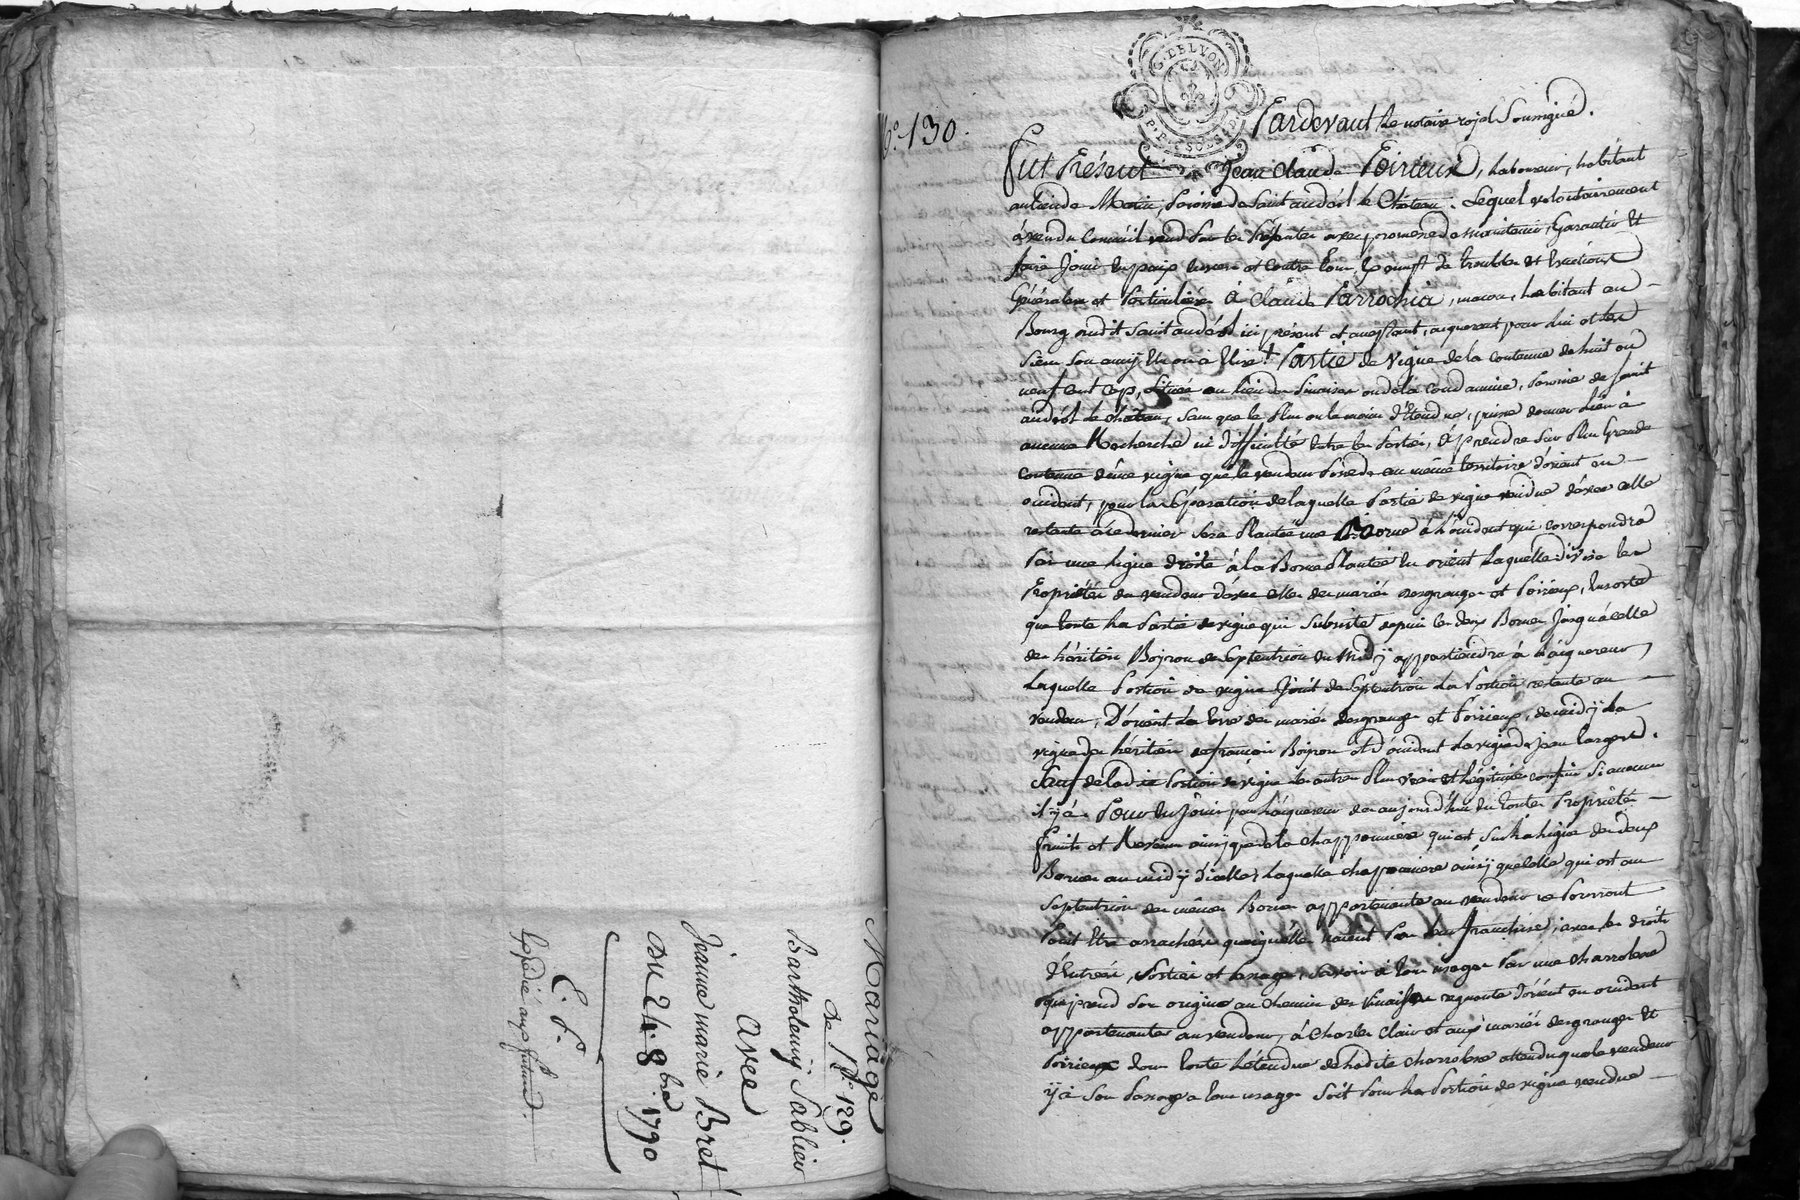 Mariage
de N.º 129.
Barthelemij Sablier
avec
jeanne marie Bret
Du 24. 8bre 1790
E. f.
Expédié aux futurs.
Nº. 130.
G. DELYON
Pardevant Le notaire royal Soussigné.
fut Présent Jean Claude Poirieux, Laboureur, habitant
Paroisse de Saint andéol le Château. Lequel volontairement
à vendu Comme il vend Par les Présentes avec promesse de maintenir, Garantir et
faire Jouir en paix envers et Contre tous, de troubles et Evictions
Générales et Particulières à Claude Parrochia, macon, habitant au
Bourg dudit Saint andéol ici présent et acceptant, acquereur pour Lui et les
Siens Partie de vigne de la contenue de huit ou
neuf cent cep, Située au lieu des ou de la condamine, Paroisse de Saint
andéol le chateau, Sans que le Plus ou le moins d'Etendue, puisse donner Lieu à
aucune Recherche ni difficulté entre les Parties, à prendre Sur Plus Grande
contenue d'une vigne que le vendeur Possede au même territoire d'orient en
occident, pour la Separation de laquelle Partie de vigne vendue d'avec celle
restante à ce dernier Sera Plantée une Borne à L'occident qui correspondra
Par une Ligne droite à la Borne Plantée en orient Laquelle divise les
Propriétés du vendeur d'avec celles des mariés desgranges et Poirieux, En sorte
que toute La Partie de vigne qui Subsiste depuis les deux Bornes Jusqu'à celle
des héritiers Boiron de Septentrion en Midÿ appartiendra à L'acquereur,
Laquelle Portion de vigne Joint de Septentrion La Portion restante au
vendeur, D'orient La terre des mariés desgranges et Poirieux, de midÿ La
vigne des héritiers de francois Boiron et d'occident La vigne de jean
Sauf de Ladite Portion de vigne Les autres Plus vrais et Légitimes confins Si aucuns
il ÿ à. Pour En Jouir par L'acquereur des aujourd'hui En toute Propriété
fruits et Revenus ainsÿ que de la chapponniere qui est Sur La Ligne des deux
Bornes au midÿ d'icelles Laquelle chaponniere ainsÿ que celle qui est au
Septentrion des mêmes Bornes appartenante au vendeur ne Pourront
Point Etre arrachées quoiqu'elle avec les droits
d'Entrées, Sorties et Passages, Savoir à tous usages Par une Charrobere
qui prend Son origine au Chemin des d'orient en occident
appartenante au vendeur, à Charles Clair et aux mariés desgranges et
Poirieux dans toute L'étendue de Ladite charrobere attendu que le vendeur
ÿ à Son Passage à tous usages Soit Pour La Portion de vigne vendue